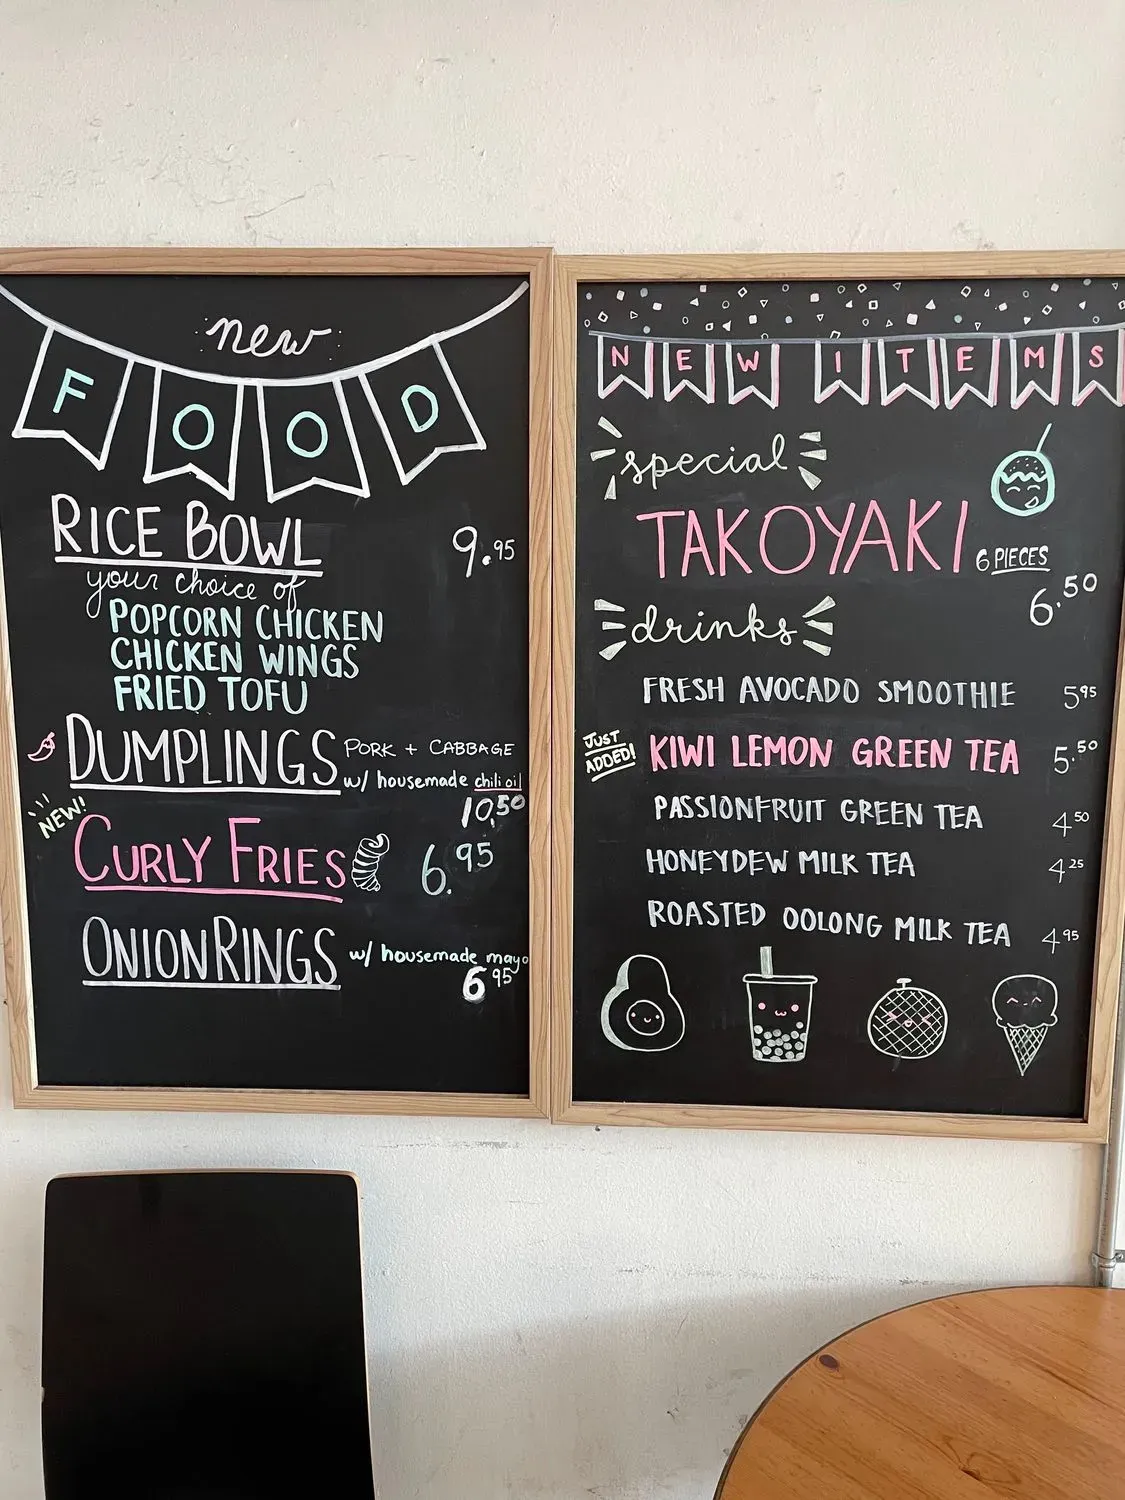 new
FOOD
RICE BOWL 9.95
your choice of
POPCORN CHICKEN
CHICKEN WINGS
FRIED TOFU
DUMPLINGS PORK + CABBAGE
w/ housemade chili oil
10.50
NEW!
CURLY FRIES 6.95
ONION RINGS w/ housemade mayo
6.95
NEW ITEMS
special
TAKOYAKI 6 PIECES
6.50
drinks
FRESH AVOCADO SMOOTHIE 5.95
JUST
ADDED!
KIWI LEMON GREEN TEA 5.50
PASSIONFRUIT GREEN TEA 4.50
HONEYDEW MILK TEA 4.25
ROASTED OOLONG MILK TEA 4.95